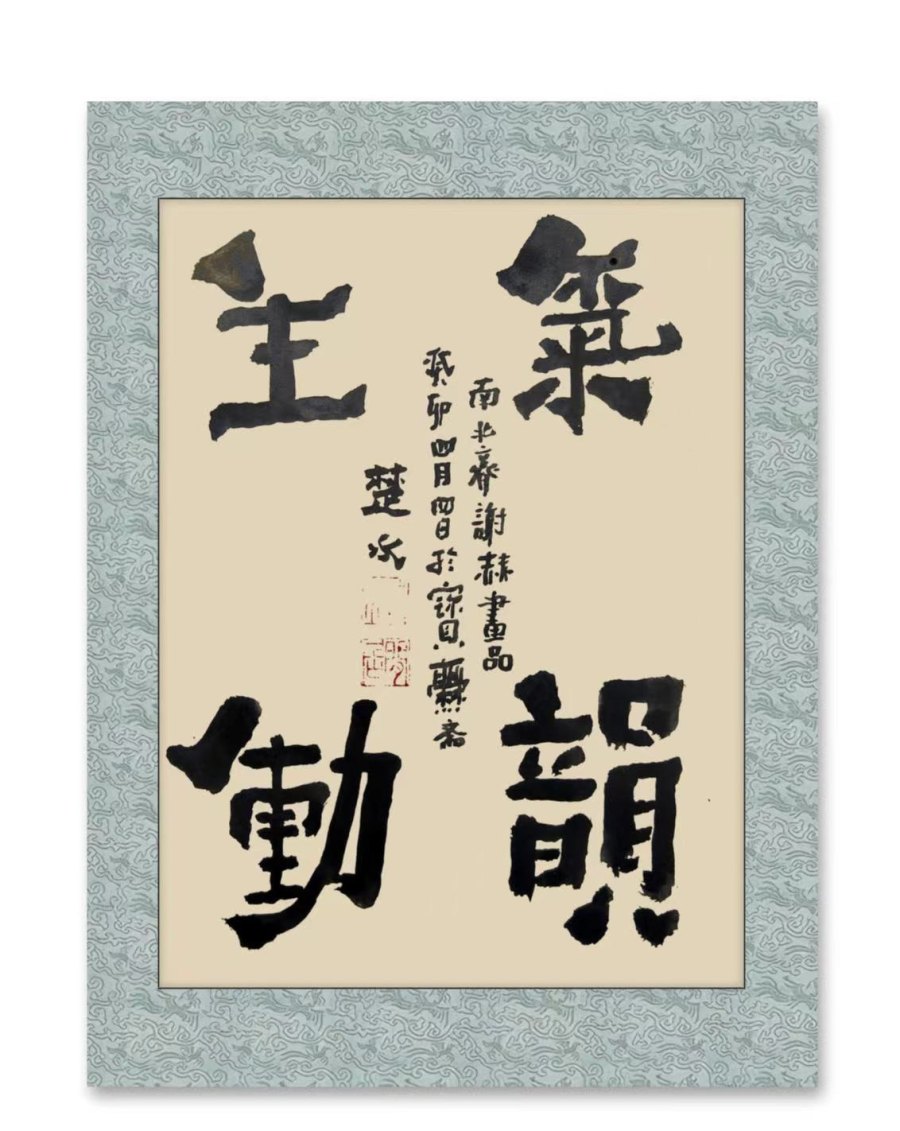 氣韻
南北齊謝赫畫品
癸卯四月四日於寶爨斋
楚水
生動